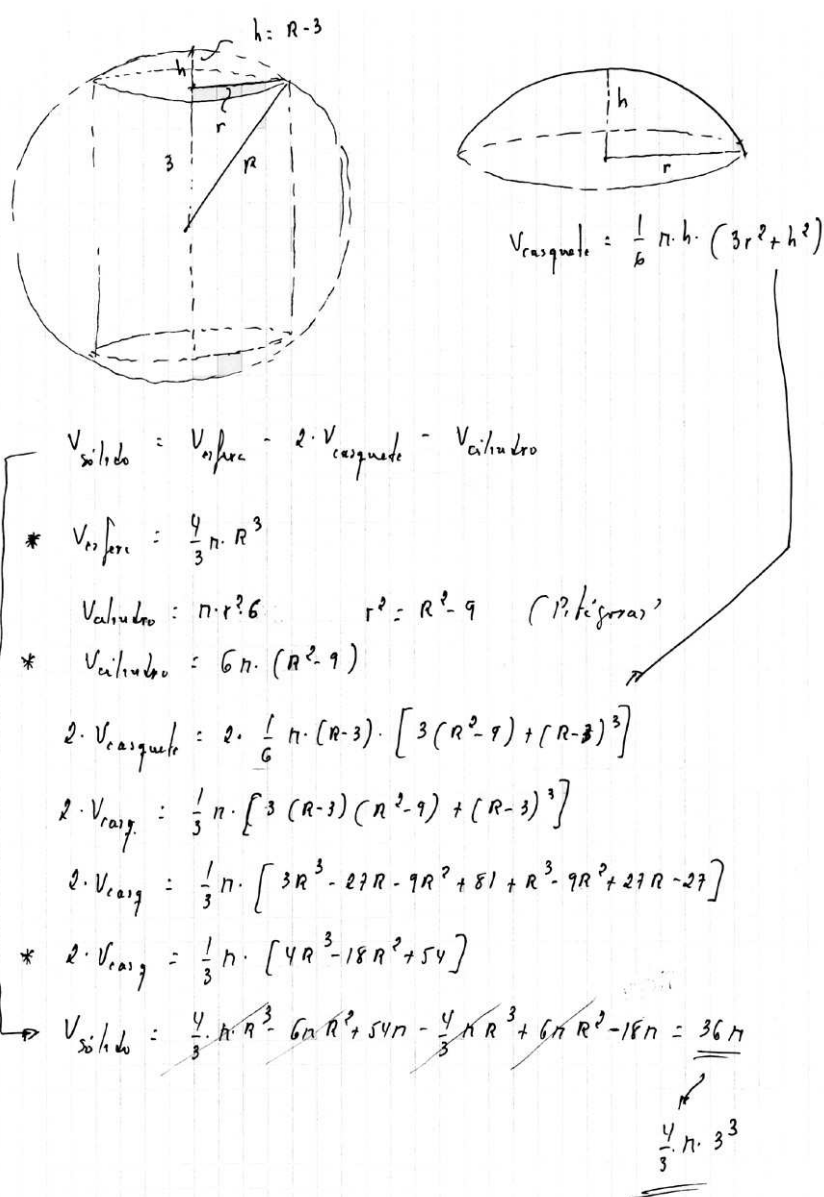 h = R-3
h
r
3
R
h
r
V casquete = 1/6 π·h·(3r²+h²)
V sólido = V esfera - 2·V casquete - V cilindro
* V esfera = 4/3 π·R³
V cilindro = π·r²·6 r² = R²-9 (Pitágoras)
* V cilindro = 6π·(R²-9)
2·V casquete = 2·1/6 π·(R-3)·[3(R²-9)+(R-3)³]
2·V casq. = 1/3 π·[3(R-3)(R²-9)+(R-3)³]
2·V casq = 1/3 π·[3R³-27R-9R²+81+R³-9R²+27R-27]
* 2·V casq = 1/3 π·[4R³-18R²+54]
V sólido = 4/3·π·R³-6πR²+54π-4/3πR³+6πR²-18π = 36π
4/3·π·3³